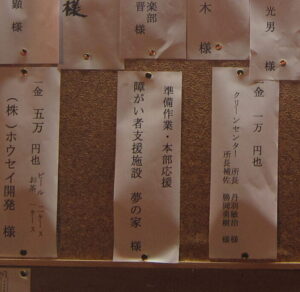 光男 様
木 様
楽部
晋 様
様
顕 様
一金 一万 円也
クリーンセンター 所長
所長補佐
様
準備作業・本部応援
障がい者支援施設 夢の家 様
一金 五万 円也
ビール 一ケース
お茶 一ケース
(株)ホウセイ開発 様